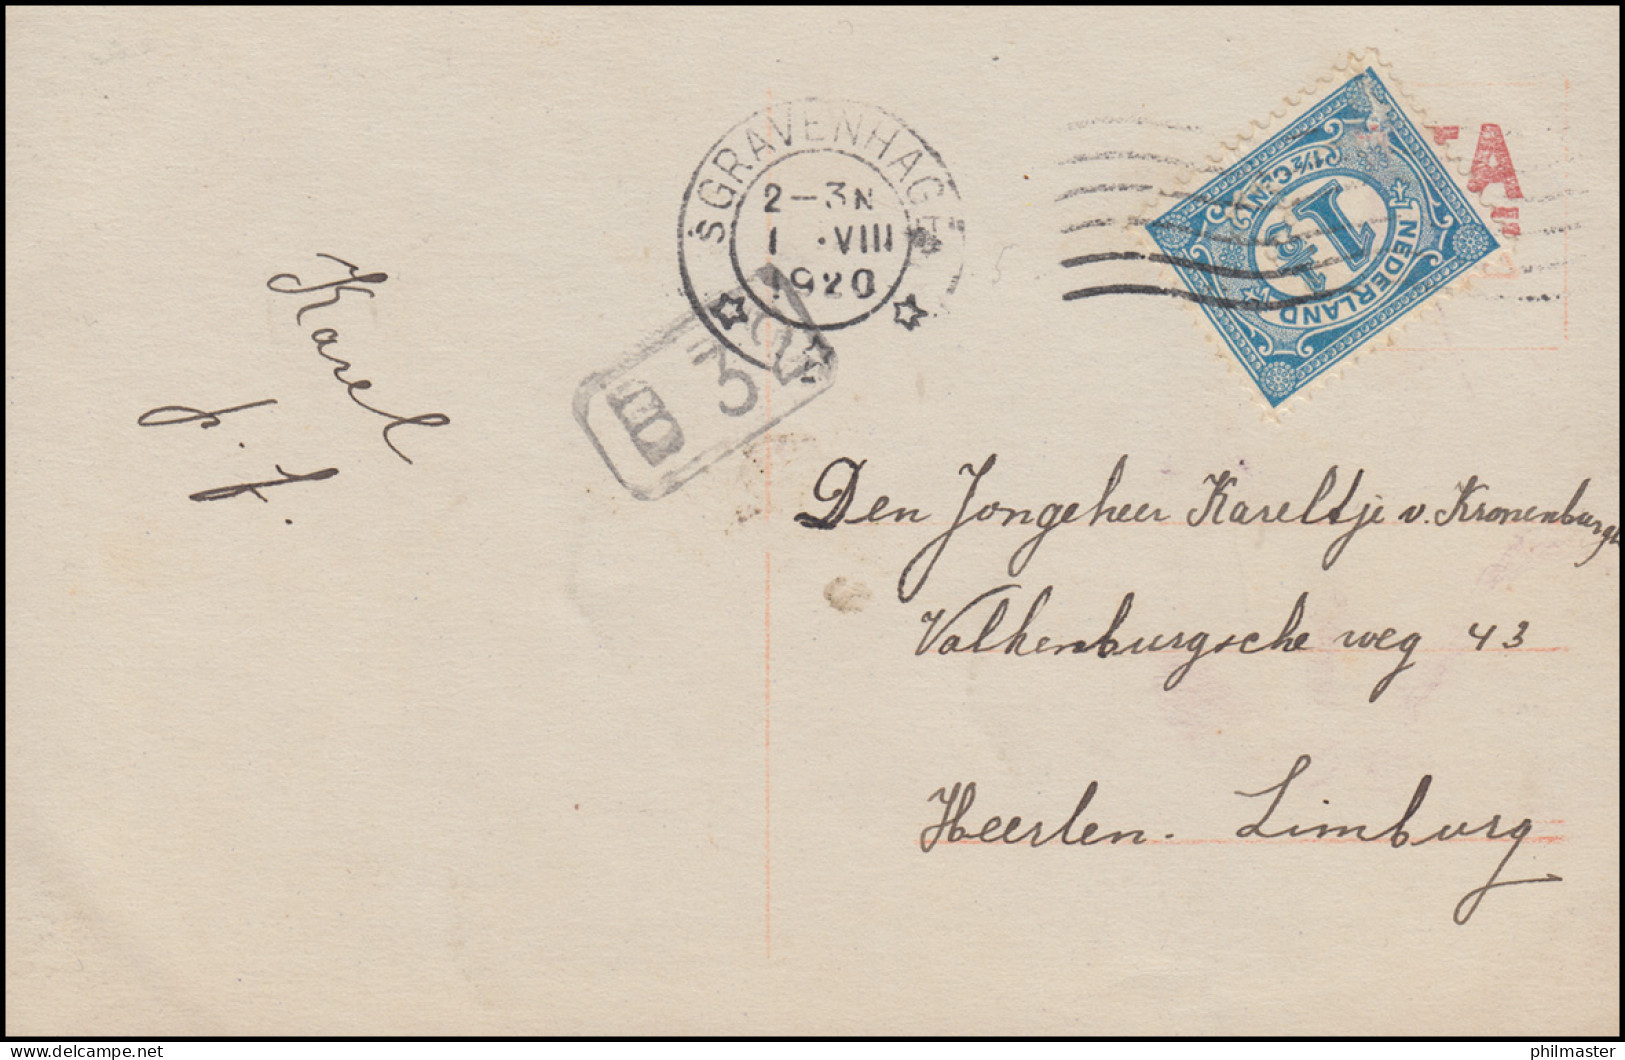 'SGRAVENHAG
2-3N
1 .VIII
1920
TA"
1½ CENT
1½
NEDERLAND
Karel
J. J.
Den Jongeheer Kareltje v. Kronenburg
Valkenburgsche weg 43
Heerlen. Limburg
delcampe.net
philmaster